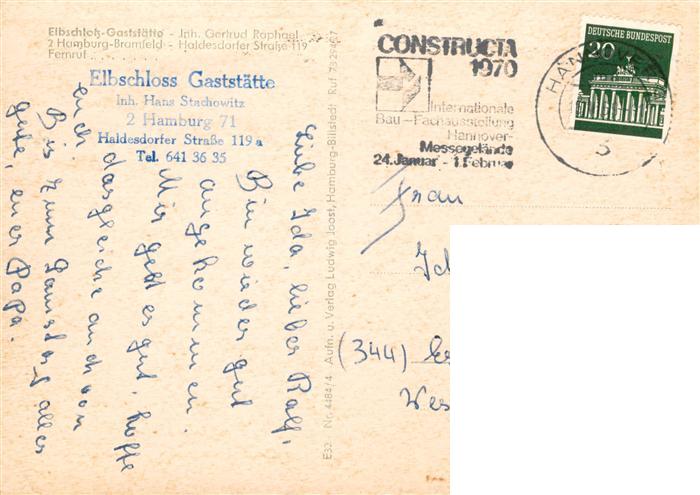 Elbschloß-Gaststätte - Inh. Gertrud Raphael
2 Hamburg-Bramfeld - Haldesdorfer Straße 119
Fernruf
Elbschloss Gaststätte
Inh. Hans Stachowitz
2 Hamburg 71
Haldesdorfer Straße 119 a
Tel. 641 36 35
Liebe Ida, lieber Ralf,
Bin wieder gut
angekommen.
Mir geht es gut, hoffe
dasgleiche auch von
euch.
Bis zum Samstag alles
gute, euer Papa.
E32 Nr. 4484/4 Aufn. u. Verlag Ludwig Joost, Hamburg-Billstedt Ruf 73 29 467
CONSTRUCTA
1970
Internationale
Bau-Fachausstellung
Hannover-
Messegelände
24. Januar - 1. Februar
DEUTSCHE BUNDESPOST
20
HANNOVER
3
Frau
(344)